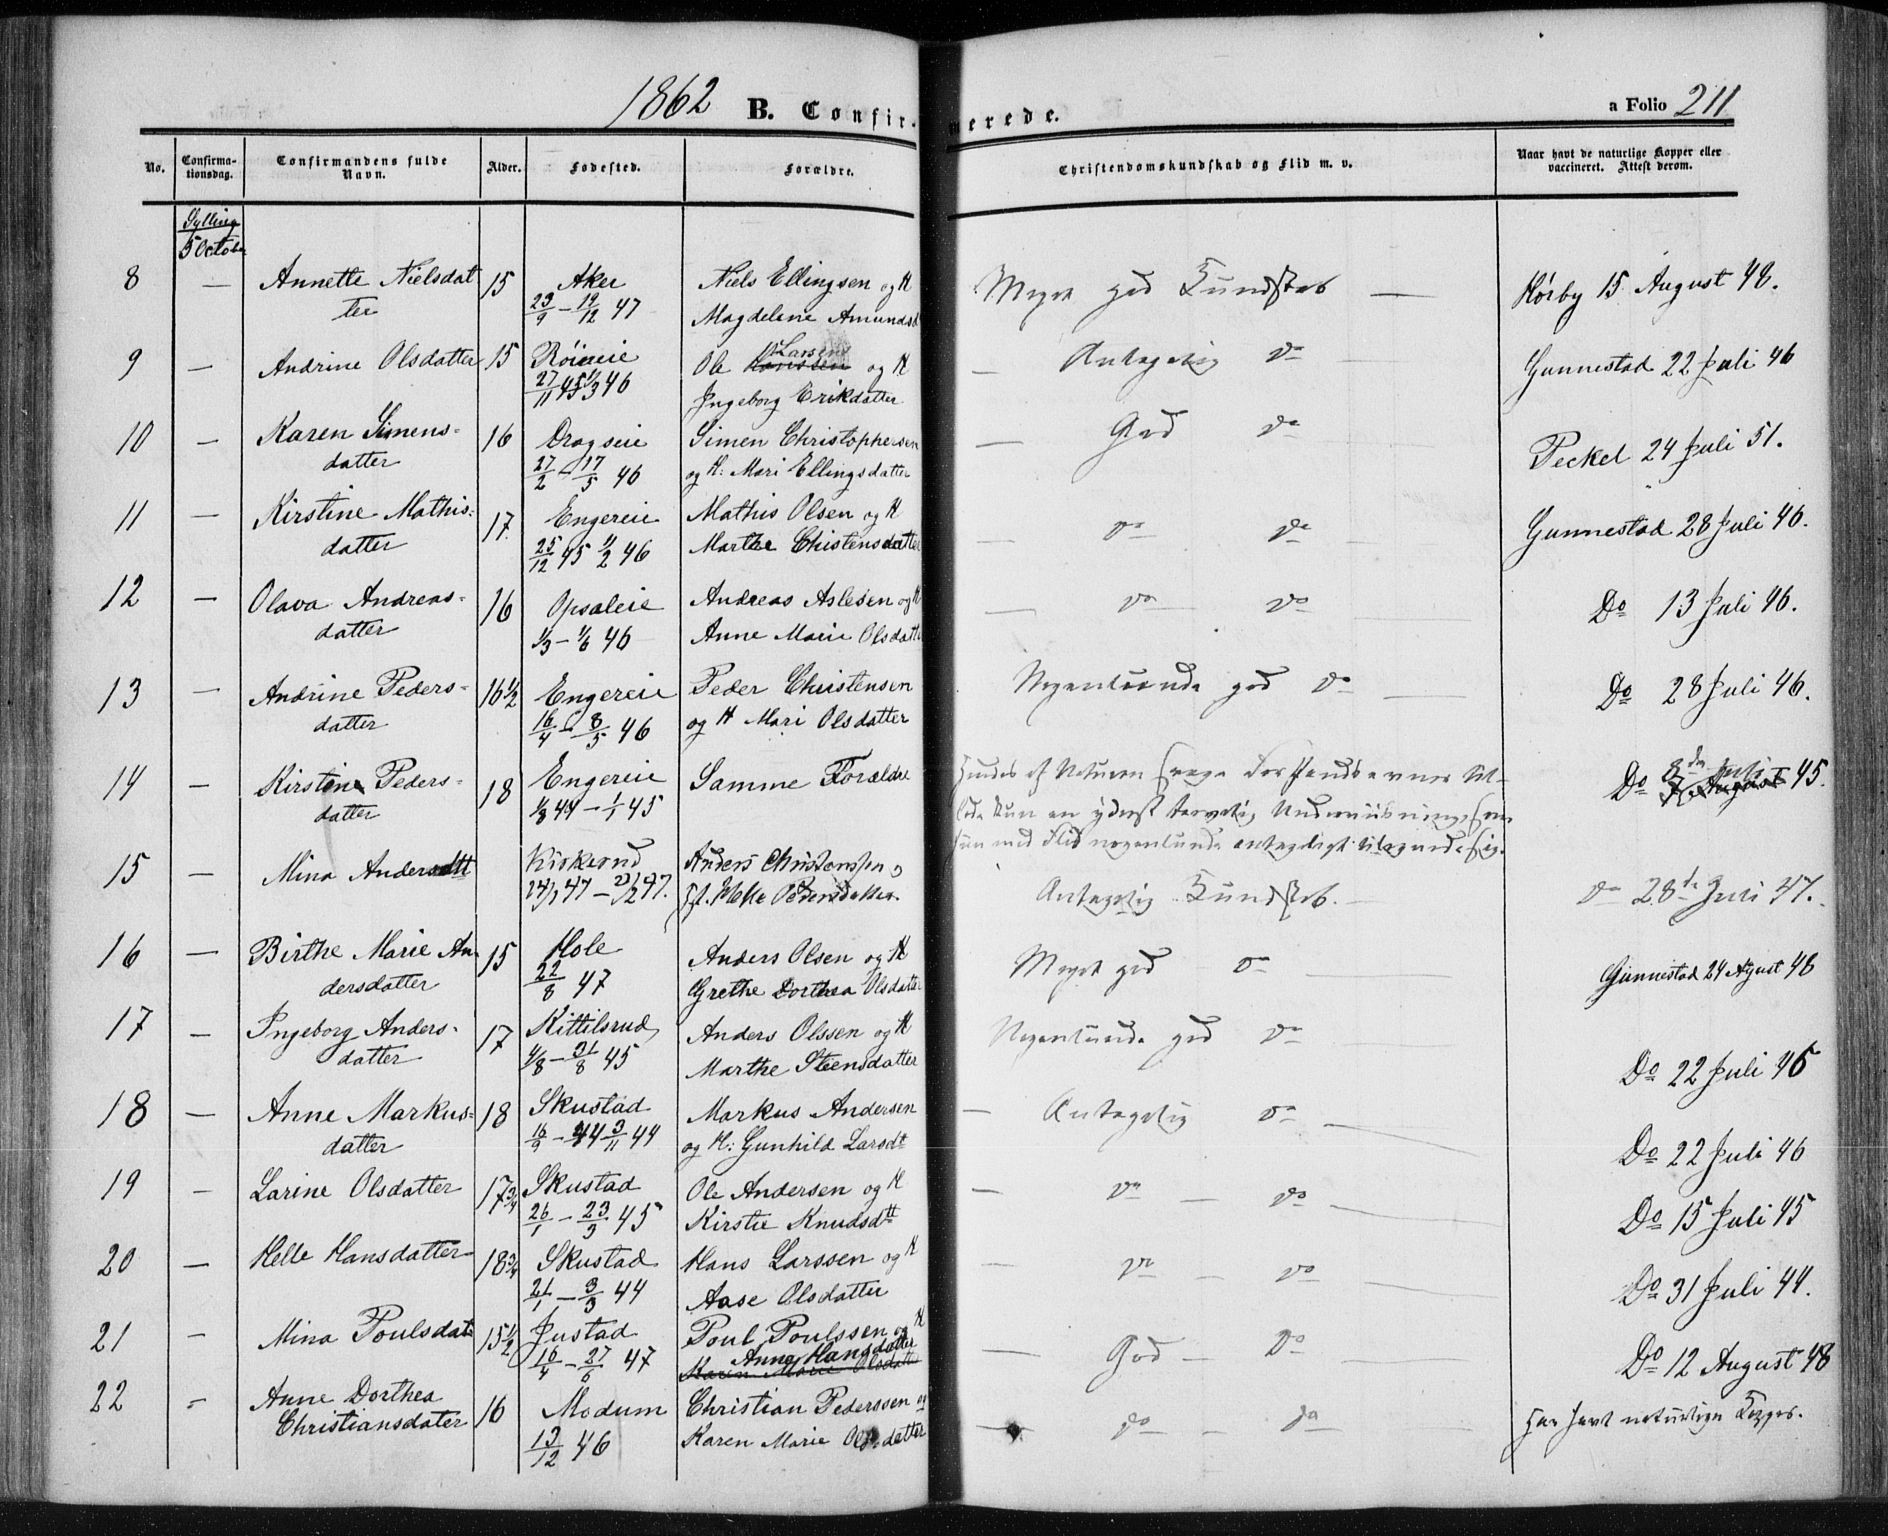 1862 B. Confirmerede. a Folio 211
No. Confirmationsdag. Confirmandens fulde Navn. Alder. Fødested. Forældre. Christendomskundskab og Flid m. v. Naar havt de naturlige Kopper eller vaccineret. Attest derom.
Sylling
5 October
8 — Annette Nielsdat 15 Aker Niels Ellingsen og H Meget god Kundskab — Hørby 15 August 48.
ter 23/9 – 19/12 47 Magdelene Amundsd
9 — Andrine Olsdatter 15 Røineie Ole Larsen og H — Antagelig do — Gunnestad 22 Juli 46
27/11 45 1/3 46 Ingeborg Erikdatter
10 — Karen Simens- 16 Drogseie Simen Christophersen — God do Peckel 24 Juli 51.
datter 27/2 – 17/5 46 og H: Mari Ellingsdatter
11 — Kirstine Mathis- 17 Engereie Mathis Olsen og H — do do — Gunnestad 28 Juli 46.
datter 25/12 45 1/2 46 Marthe Chistensdatter
12 — Olava Andreas- 16 Opsaleie Andreas Aslesen og H — do do Do 13 Juli 46.
datter 1/3 – 1/6 46 Anne Marie Olsdatte
13 — Andrine Peders- 16 1/2 Engereie Peder Christensen Nogenlunde god do — Do 28 Juli 46.
datter 16/4 – 8/5 46 og H Mari Olsdatter
14 — Kirstine Peders- 18 Engereie Samme Forældre Hendes af Naturen svage Forstandsevner til-
datter 1/8 44 – 1/1 45 lod kun en yderst tarvelig Do 8de Juli 45.
hun med Flid nogenlunde antageligt tilegnede sig.
15 — Mina Andersdtt Kirkerud Anders Christensen o Antagelig Kundskab. — do 28de Juli 47.
24/1 47 – 21/2 47. Pedersdatter
16 — Birthe Marie An- 15 Hole Anders Olsen og H Meget god do — Gunnestad 24 Agust 48
dersdatter 22/8 47 Grethe Dorthea Olsdatter
17 — Ingeborg Anders- 17 Kittilsrud Anders Olssen og H Nogenlunde god do —
datter 4/8 – 31/8 45 Marthe Steensdatter Do 22 Juli 46
18 — Anne Markus- 18 Skustad Markus Andersen — Antagelig do —
datter 16/9 – 44 3/11 44 og H: Gunhild Larsdt Do 22 Juli 46
19 — Larine Olsdatter 17 3/4 Skustad Ole Andersen og H — do — do Do 15 Juli 45
26/1 – 23/3 45 Kirstie Knudsdtt
20 — Helle Hansdatter 18 3/4 Skustad Hans Larssen og H — do — do Do 31 Juli 44.
21/1 – 3/3 44 Aase Olsdatter
21 — Mina Poulsdat 15 1/2 Justad Poul Poulssen og H — God — Do — Do 12 August 48
16/4 – 27/6 47 Anne Hansdatter
Karen Marie Olsdatte
22 — Anne Dorthea 16 Modum Christian Pederssen og — do — do — Har havt naturlige Kopper.
Christiansdater 13/12 46 Karen Marie Olsdatter